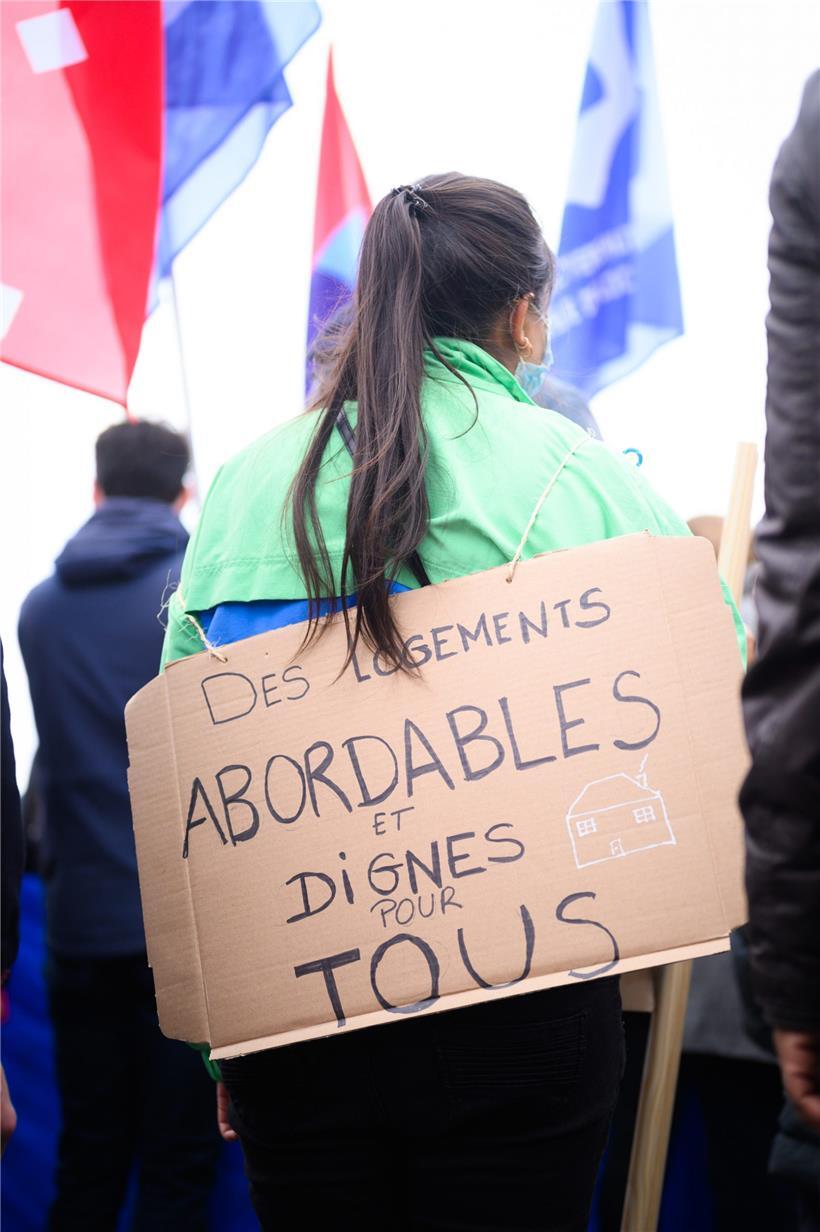 DES LOGEMENTS
ABORDABLES
ET
DiGNES
POUR
TOUS